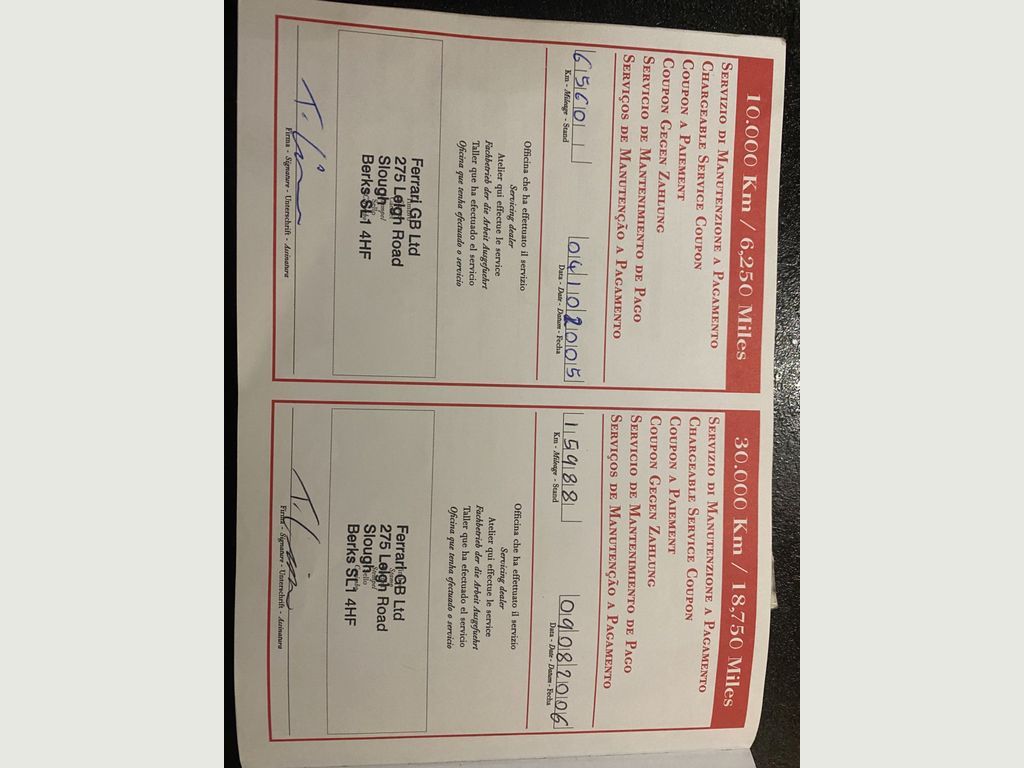 10.000 Km / 6,250 Miles
Servizio di Manutenzione a Pagamento
Chargeable Service Coupon
Coupon a Paiement
Coupon Gegen Zahlung
Servicio de Mantenimento de Pago
Serviços de Manutenção a Pagamento
6560
04102005
Km - Mileage - Stand
Data - Date - Datum - Fecha
Officina che ha effettuato il servizio
Servicing dealer
Atelier qui effectue le service
Fachbetrieb der die Arbeit Ausgefuehrt
Taller que ha efectuado el servicio
Oficina que tenha efectuado o servicio
Ferrari GB Ltd
275 Leigh Road
Slough
Berks SL1 4HF
Firma - Signature - Unterschrift - Assinatura
30.000 Km / 18,750 Miles
Servizio di Manutenzione a Pagamento
Chargeable Service Coupon
Coupon a Paiement
Coupon Gegen Zahlung
Servicio de Mantenimiento de Pago
Serviços de Manutenção a Pagamento
15988
09082006
Km - Mileage - Stand
Data - Date - Datum - Fecha
Officina che ha effettuato il servizio
Servicing dealer
Atelier qui effectue le service
Fachbetrieb der die Arbeit Ausgefuehrt
Taller que ha efectuado el servicio
Oficina que tenha efectuado o servicio
Ferrari GB Ltd
275 Leigh Road
Slough
Berks SL1 4HF
Firma - Signature - Unterschrift - Assinatura